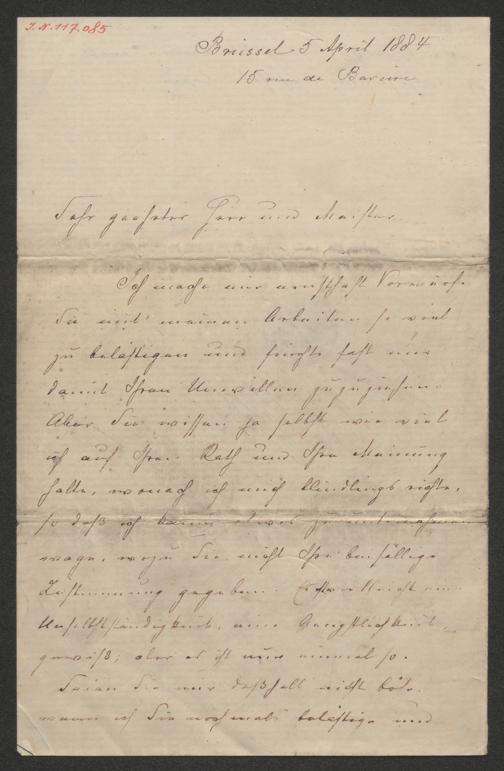 J. N. 117.085
Brüssel 5 April 1884
15 rue de
Sehr geehrter Herr und Meister.
Ich mache mir ernsthaft Vorwürfe
Sie mit meinen Arbeiten so viel
zu belästigen und fürchte fast mir
damit Ihren Unwillen zuzuziehen.
Aber Sie wissen ja selbst wie viel
ich auf Ihren Rath und Ihre Meinung
halte, wonach ich mich blindlings richte,
so daß ich kaum etwas zu unternehmen
wage, wozu Sie nicht Ihre beifällige
Zustimmung gegeben. Es vielleicht eine
Unselbstständigkeit, eine Aengstlichkeit
gewiß; aber es ist nun einmal so.
Seien Sie mir deßhalb nicht böse
wenn ich Sie nochmals belästige und